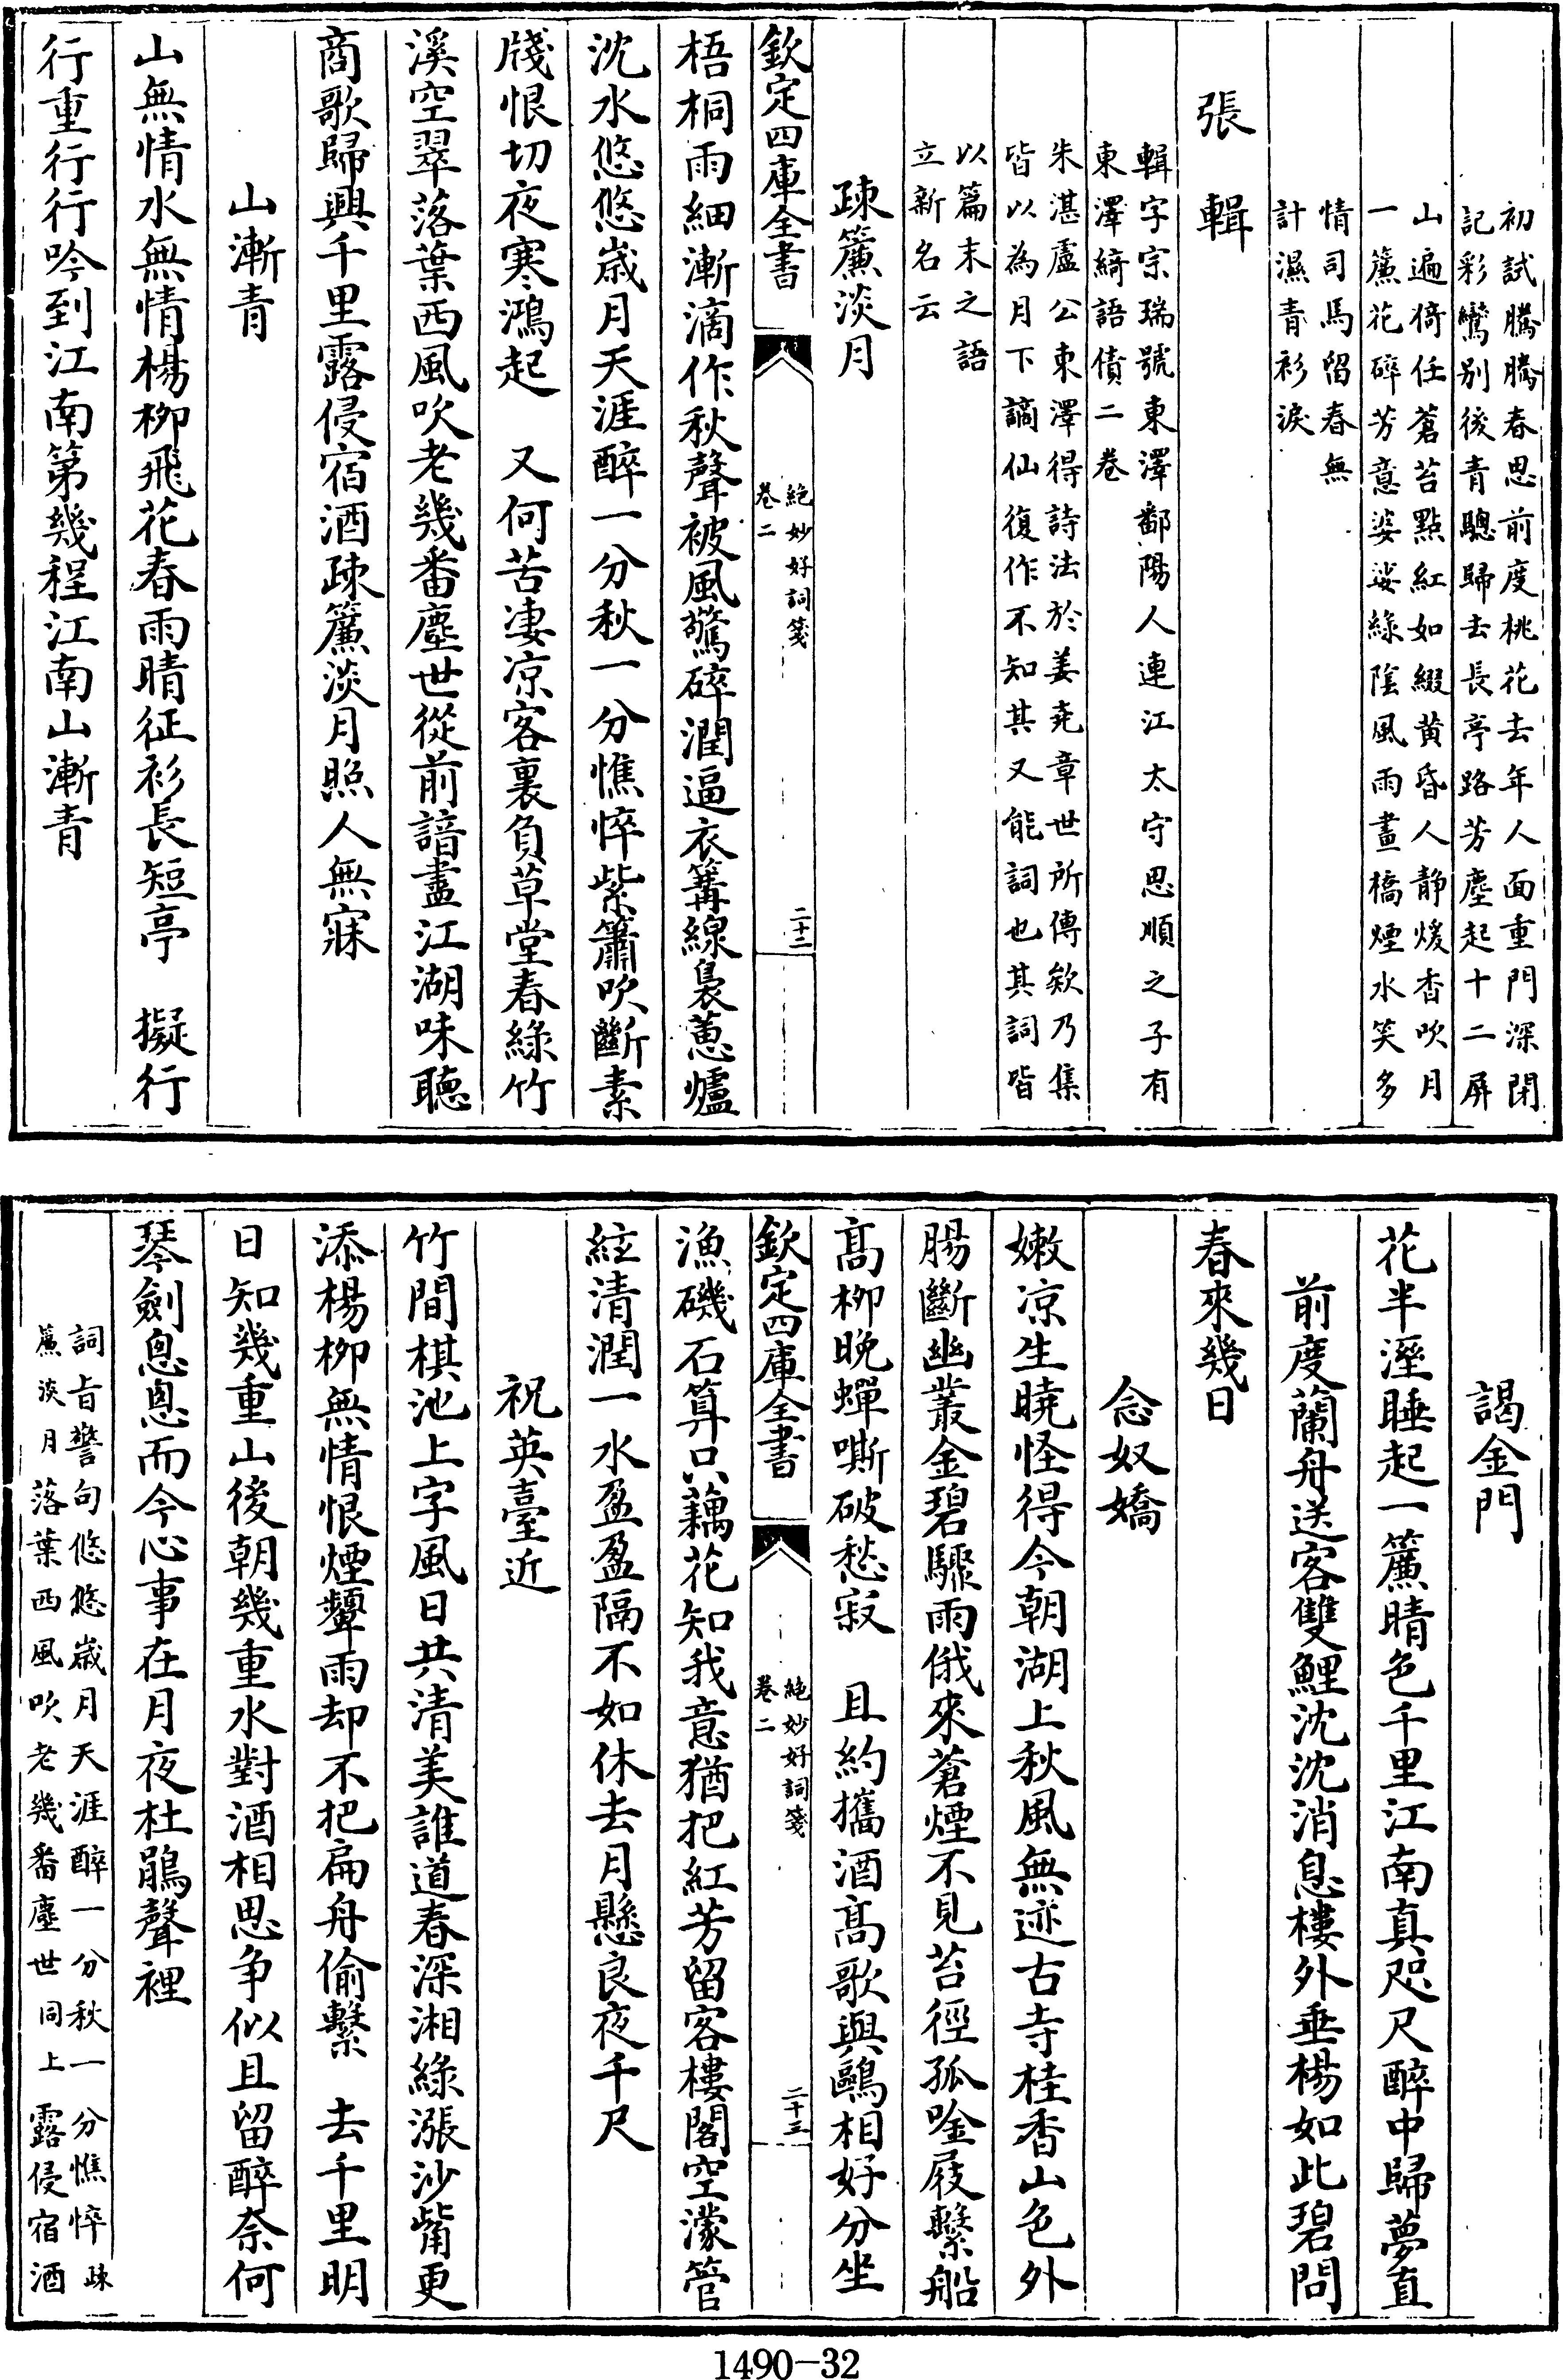 初試騰騰春思前度桃花去年人面重門深閉
記彩鸞別後青驄歸去長亭路芳塵起十二屏
山遍倚任蒼苔點紅如綴黄昏人静煖香吹月
一簾花碎芳意婆娑綠陰風雨畫橋煙水笑多
情司馬留春無
計濕青衫淚
張輯
輯字宗瑞號東澤鄱陽人連江太守思順之子有
東澤綺語債二卷
朱湛盧公東澤得詩法於姜堯章世所傳欸乃集
皆以為月下謫仙復作不知其又能詞也其詞皆
以篇末之語
立新名云
疎簾淡月
欽定四庫全書
絶妙好詞箋
卷二
二十二
梧桐雨細漸滴作秋聲被風驚碎潤逼衣篝線裊蕙爐
沈水悠悠歲月天涯醉一分秋一分憔悴紫簫吹斷素
牋恨切夜寒鴻起 又何苦凄凉客裏負草堂春綠竹
溪空翠落葉西風吹老幾番塵世從前諳盡江湖味聽
商歌歸興千里露侵宿酒疎簾淡月照人無寐
山漸青
山無情水無情楊柳飛花春雨晴征衫長短亭 擬行
行重行行吟到江南第幾程江南山漸青
謁金門
花半溼睡起一簾晴色千里江南真咫尺醉中歸夢直
前度蘭舟送客雙鯉沈沈消息樓外垂楊如此碧問
春來幾日
念奴嬌
嫩凉生曉怪得今朝湖上秋風無迹古寺桂香山色外
腸斷幽叢金碧驟雨俄來蒼煙不見苔徑孤唫屐繫船
髙柳晚蟬嘶破愁寂 且約攜酒髙歌與鷗相好分坐
欽定四庫全書
絶妙好詞箋
卷二
二十三
漁磯石算只藕花知我意猶把紅芳留客樓閣空濛管
絃清潤一水盈盈隔不如休去月懸良夜千尺
祝英臺近
竹間棋池上字風日共清美誰道春深湘綠漲沙觜更
添楊柳無情恨煙顰雨却不把扁舟偷繫 去千里明
日知幾重山後朝幾重水對酒相思争似且留醉奈何
琴劍匆匆而今心事在月夜杜鵑聲裡
詞旨警句悠悠歲月天涯醉一分秋一分憔悴疎
簾淡月落葉西風吹老幾番塵世同上露侵宿酒
1490-32